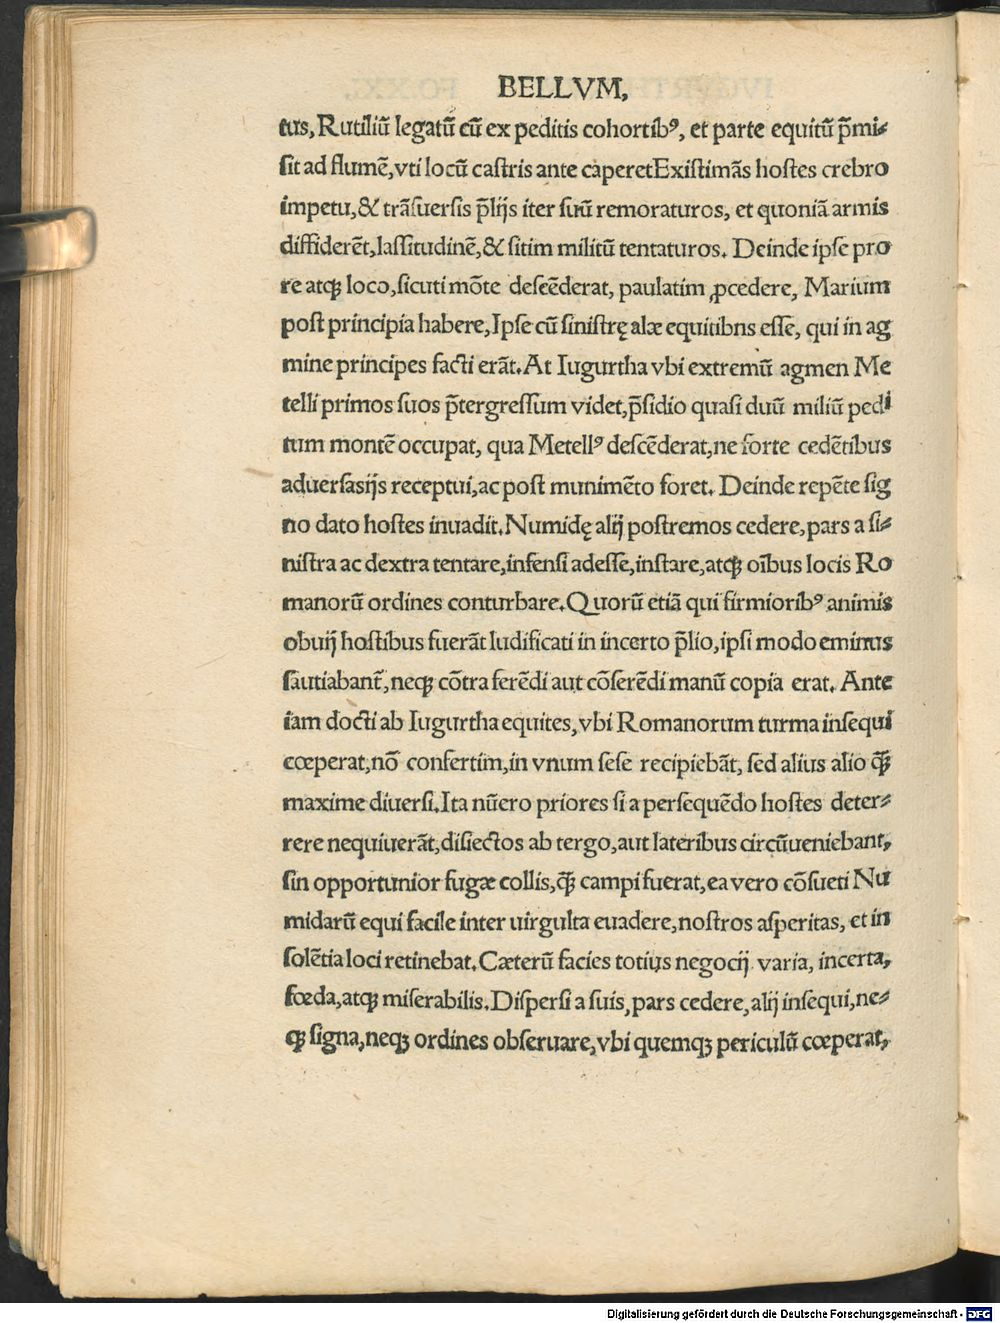 BELLVM,
tus, Rutiliū legatū cū ex peditis cohortibꝰ, et parte equitū p̄mi⸗
ſit ad flumē, vti locū caſtris ante caperetExiſtimãs hoſtes crebro
impetu, & trãſuersis p̄lijs iter ſuū remoraturos, et quoniã armis
diffiderẽt, laſſitudinẽ, & ſitim militū tentaturos. Deinde ipſe pro
re atqꝫ loco, ſicuti mõte deſcẽderat, paulatim ꝓcedere, Marium
poſt principia habere, Ipſe cū ſiniſtrę alæ equitibns eſſe, qui in ag
mine principes facti erãt. At Iugurtha vbi extremū agmen Me
telli primos ſuos p̄tergreſſum videt, p̄ſidio quaſi duū miliū pedi
tum montẽ occupat, qua Metellꝰ deſcẽderat, ne forte cedẽtibus
aduerſasijs receptui, ac poſt munimẽto foret. Deinde repẽte ſig
no dato hoſtes inuadit. Numidę alij poſtremos cedere, pars a ſi⸗
niſtra ac dextra tentare, infenſi adeſſe, inſtare, atqꝫ oībus locis Ro
manorū ordines conturbare. Quorū etiã qui firmioribꝰ animis
obuij hoſtibus fuerãt ludificati in incerto p̄lio, ipſi modo eminus
ſautiabant᷑, neqꝫ cõtra ferẽdi aut cõſerẽdi manū copia erat. Ante
iam docti ab Iugurtha equites, vbi Romanorum turma inſequi
cœperat, nõ confertim, in vnum ſeſe recipiebãt, ſed alius alio q̃ꝫ
maxime diuerſi. Ita nūero priores ſi a perſequẽdo hoſtes deter⸗
rere nequiuerãt, diſiectos ab tergo, aut lateribus circūueniebant,
ſin opportunior fugæ collis, q̃ꝫ campi fuerat, ea vero cõſueti Nu
midarū equi facile inter uirgulta euadere, noſtros aſperitas, et in
ſolẽtia loci retinebat. Cæterū facies totius negocij varia, incerta,
fœda, atqꝫ miſerabilis. Diſperſi a ſuis, pars cedere, alij inſequi, ne⸗
qꝫ ſigna, neqꝫ ordines obſeruare, vbi quemqꝫ periculū cœperat,
Digitalisierung gefördert durch die Deutsche Forschungsgemeinschaft - DFG